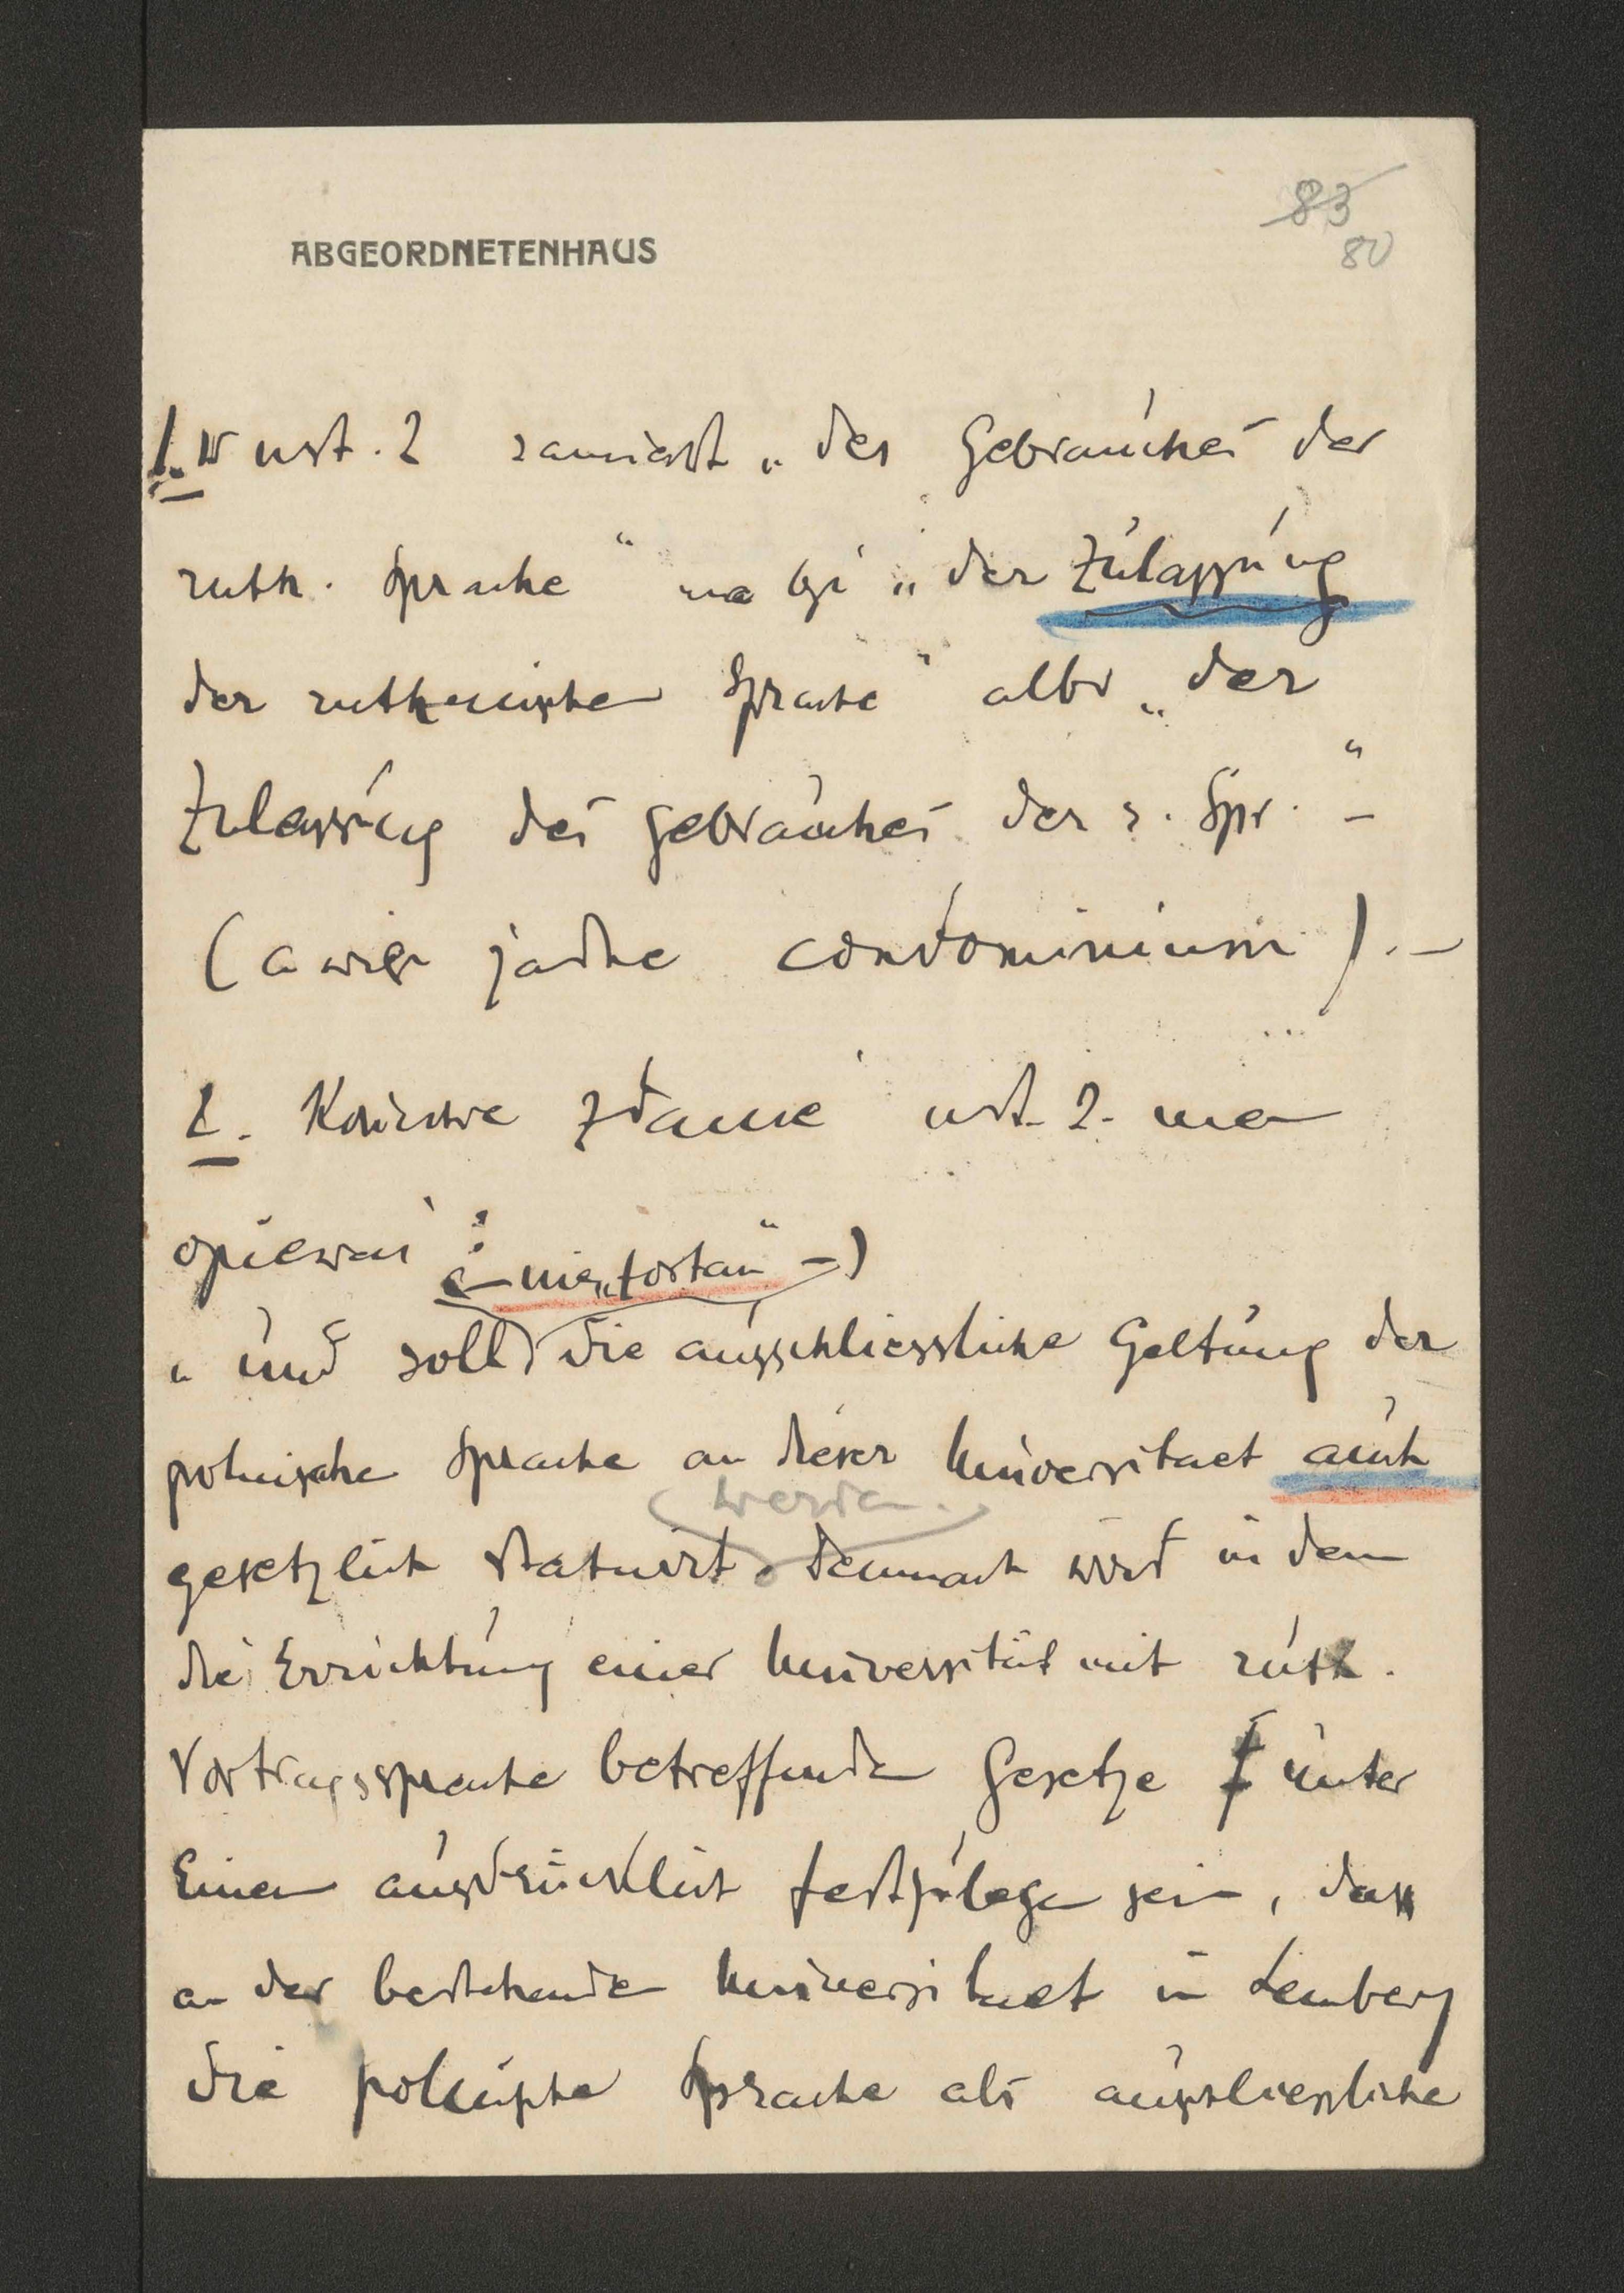 83
80
ABGEORDNETENHAUS
1. W ust. 2 zamiast „des Gebrauches der
ruth. Sprache" ma być „der Zulassung
der ruthenischen Sprache" albo „der
Zulassung des Gebrauches der r. Spr." –
(a więc żadne condominium). –
2. Końcowe zdanie ust. 2. ma
opiewać:
(– nie „fortan" –)
„und soll die ausschliessliche Geltung der
polnische Sprache an dieser Universitaet auch
werden.
gesetzlich statuirt. Demnach wird in dem
die Errichtung einer Universität mit ruth.
Vortragssprache betreffenden Gesetze unter
Einem ausdrücklich festzulegen sein, dass
an der bestehenden Universitaet in Lemberg
die polnische Sprache als ausschliessliche